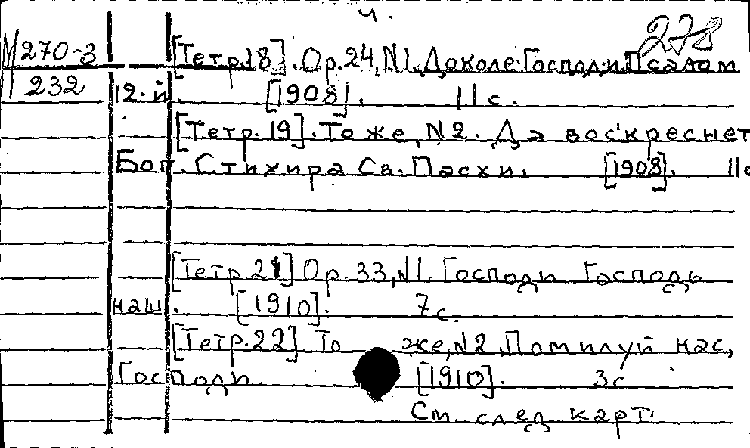 4.
278
М 270-3 [Тетр.18]. Ор.24, N1. Доколе Господи. Псалом
232 12.й. [1908]. 11с.
[Тетр.19]. То же, N2. Да воскреснет
Бог. Стихира Св. Пасхи. [1908]. 11с
[Тетр.21] Ор.33, N1. Господи Господь
наш. [1910]. 7с.
[Тетр.22]. То же, N2. Помилуй нас,
Господи. [1910]. 3с
См. след карт.